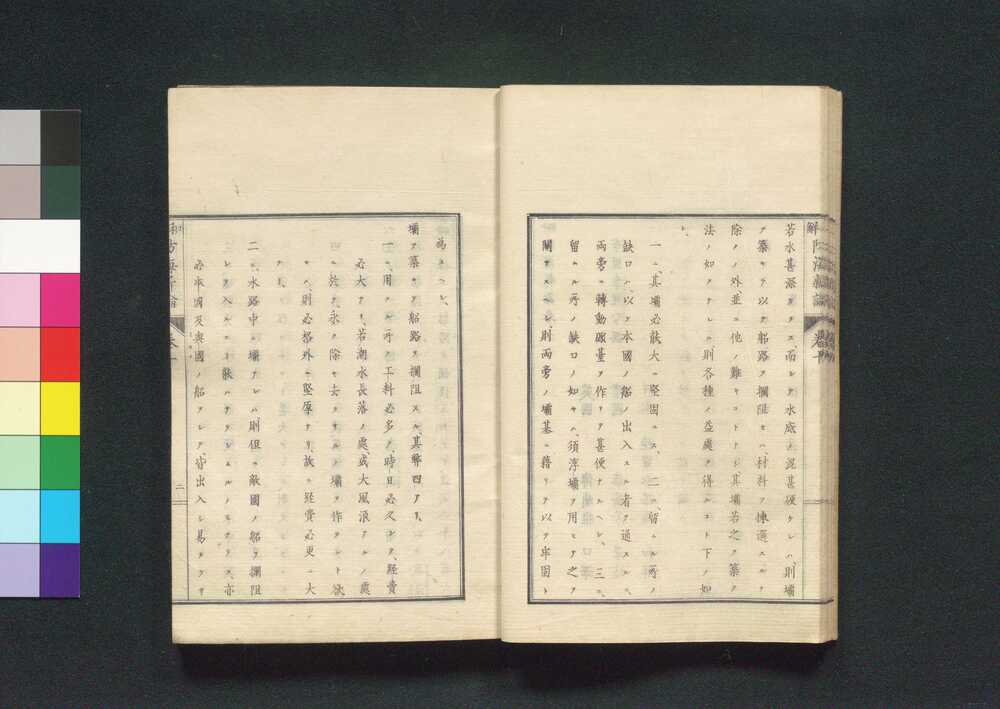 若水甚深カラス、而シテ水底ノ泥甚硬ケレハ、則壩
ヲ築キテ以テ船路ヲ攔阻セハ、材料ヲ揀選スルヲ
除クノ外、並ニ他ノ難キコトナシ、其壩若之ヲ築ク
法ノ如クナレハ、則各種ノ益處ヲ得ルコト下ノ如
シ、
一ニ、其壩必能大ニ堅固ニス、二ニ、留ムル所ノ
缺口ハ、以テ本國ノ船ノ出入スル者ヲ通スルニ、
兩旁ニ轉動礮臺ヲ作リテ甚便ナルヘシ、三ニ、
留ムル所ノ缺口ノ如キハ、須浮壩ヲ用ヒテ之ヲ
關スヘシ、則兩旁ノ壩基ニ藉リテ以テ牢固ト
為スヘシ、
壩ヲ築キテ船路ヲ攔阻スル、其弊四アリ、
一ニ、用フル所ノ工料必多ク、時日必久シク、經費
必大ナリ、若潮水長落ノ處、或大風浪アルノ處
ニ於テ、永ク除キ去ラサルノ壩ヲ作ラント欲
ハ、則必格外ニ堅厚ナリ、故ニ經費必更ニ大
ナリ、
二ニ、水路中ニ壩アレハ、則但ニ敵國ノ船ヲ攔阻
シテ入ルコト能ハサラシムルノミナラス、亦
必本國及與國ノ船ヲシテ、皆出入シ易カラサ
防海新論 卷十
二